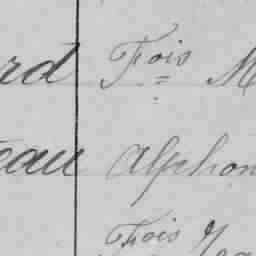 rd Fois M
eau Alphon
Fois